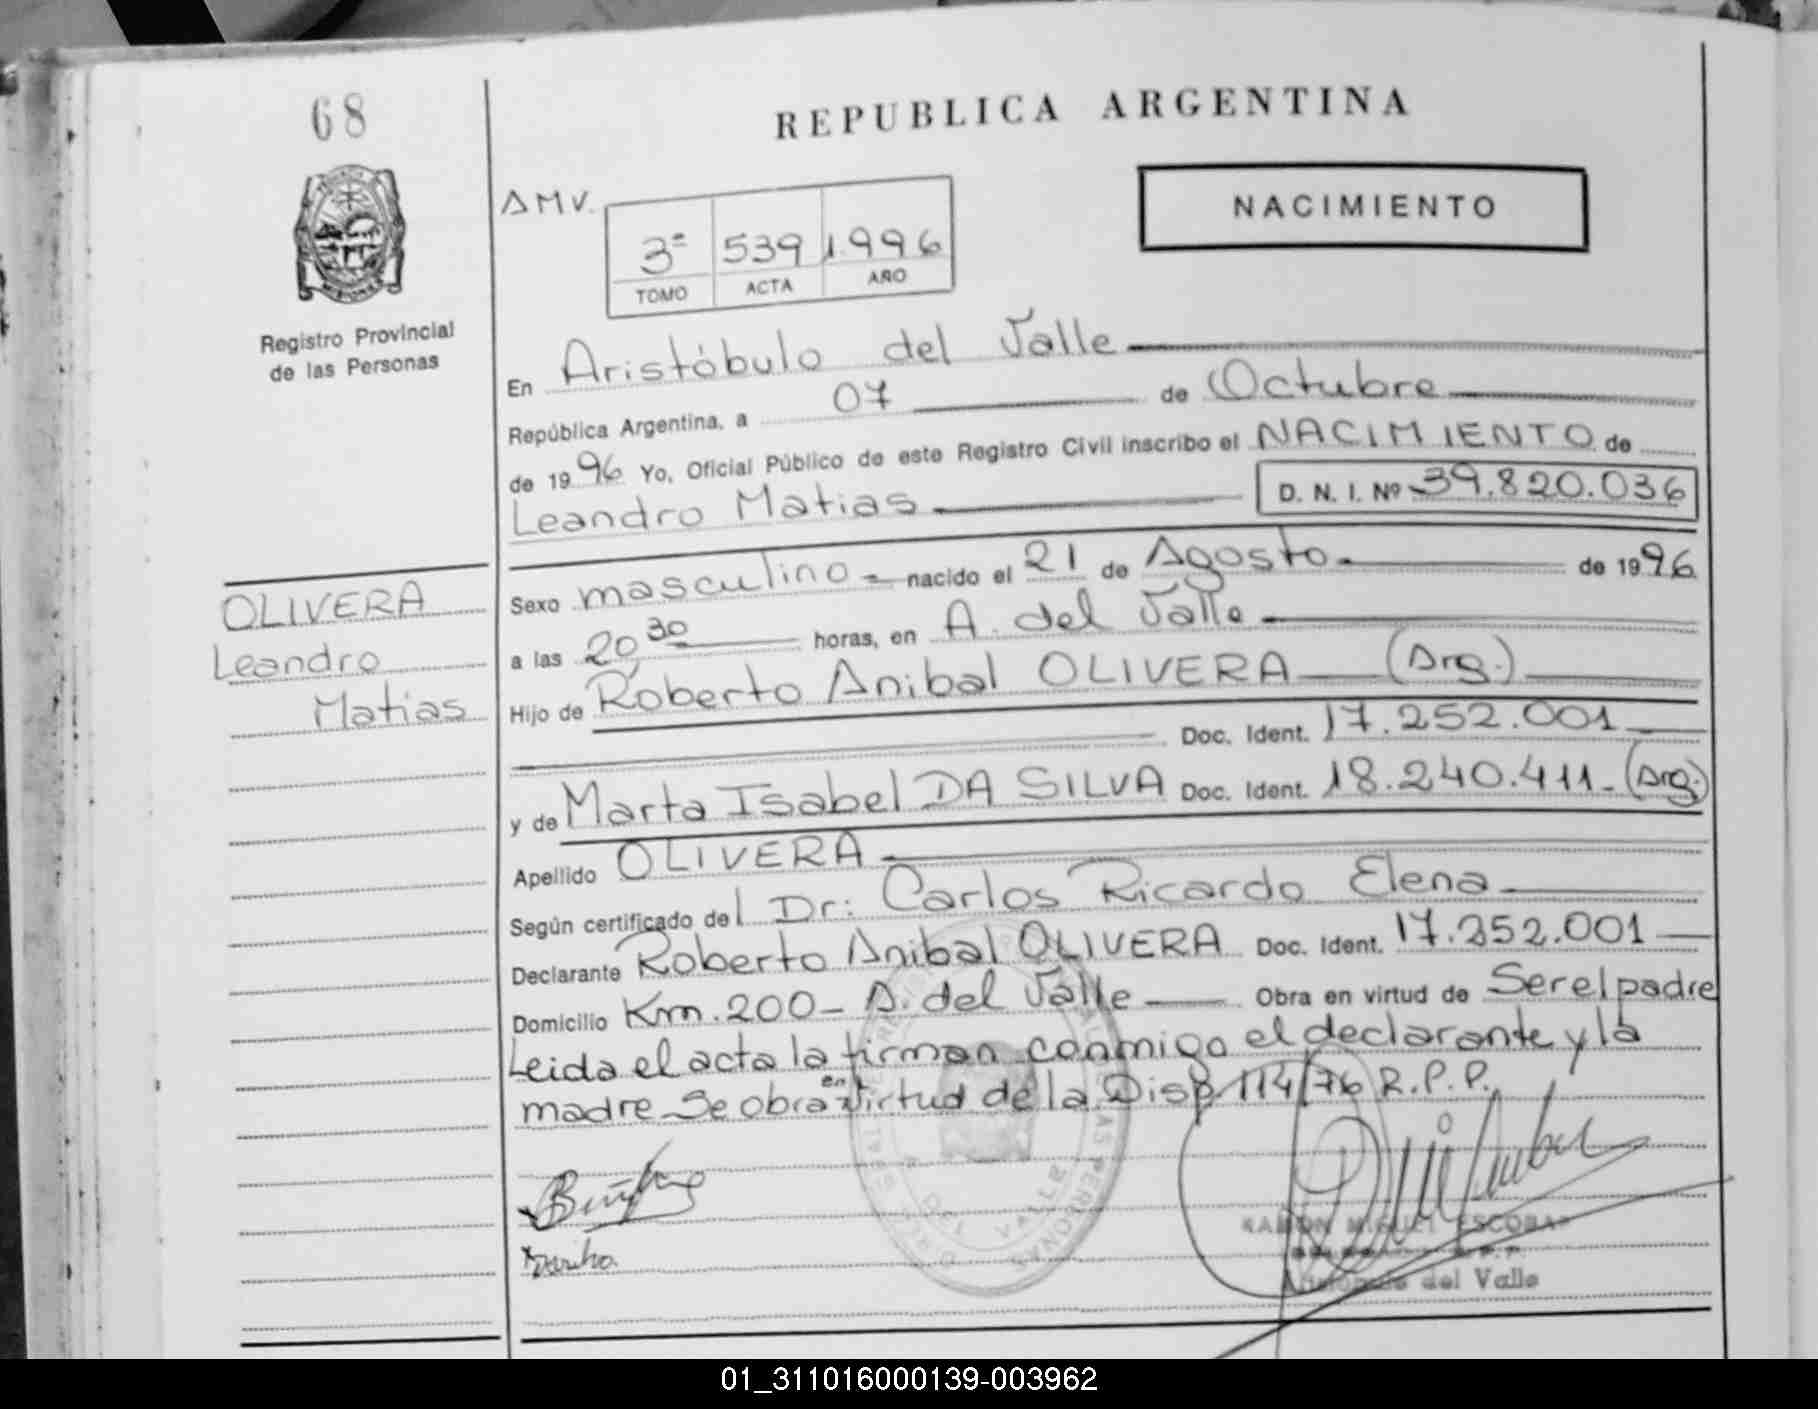 68
REPUBLICA ARGENTINA
NACIMIENTO
AMV.
3º 539 1.996
TOMO ACTA AÑO
PROVINCIA
MISIONES
Registro Provincial
de las Personas
En Aristóbulo del Valle
República Argentina, a 07 de Octubre
de 1996 Yo, Oficial Público de este Registro Civil inscribo el NACIMIENTO de
Leandro Matias D. N. I. Nº 39.820.036
OLIVERA
Leandro
Matias
Sexo masculino nacido el 21 de Agosto de 1996
a las 20 30 horas, en A. del Valle
Hijo de Roberto Anibal OLIVERA (Arg.)
Doc. Ident. 17.252.001
y de Marta Isabel DA SILVA Doc. Ident. 18.240.411 (Arg.)
Apellido OLIVERA
Según certificado del Dr: Carlos Ricardo Elena
Declarante Roberto Anibal OLIVERA Doc. Ident. 17.252.001
Domicilio Km. 200 - A. del Valle Obra en virtud de Ser el padre
Leida el acta la firman conmigo el declarante y la
madre se obra en virtud de la Disp. 114/76 R.P.P.
DEL VALLE
RAMON MIGUEL ESCOBAR
Aristóbulo del Valle
01_311016000139-003962